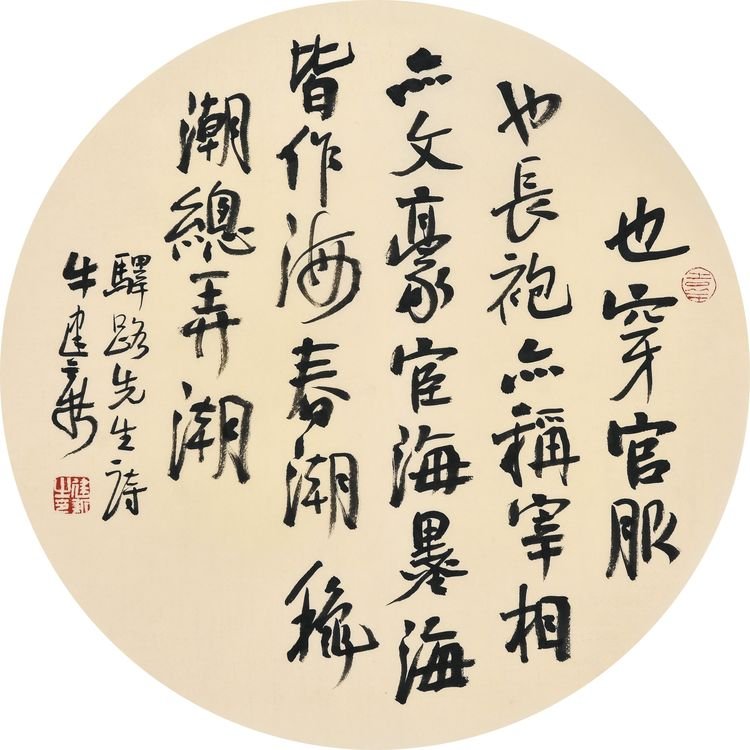 也穿官服
也長袍亦稱宰相
亦文豪宦海墨海
皆作海春潮穐
潮總弄潮
驛路先生詩
牛建